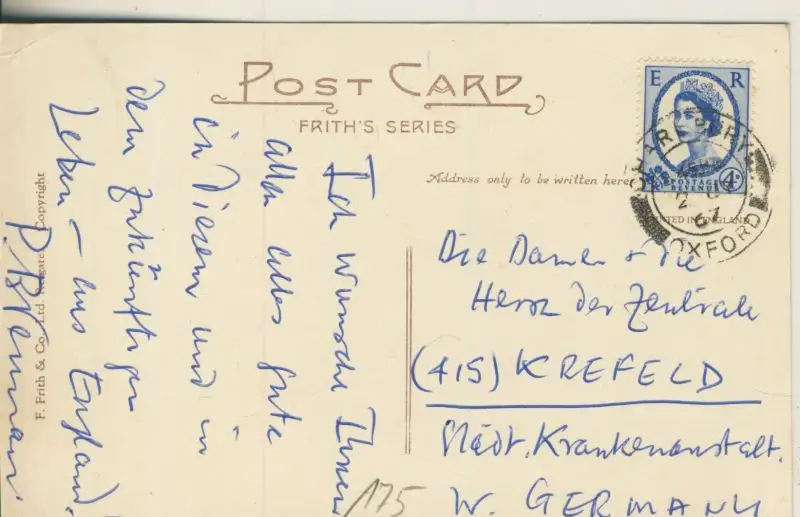 POST CARD
FRITH'S SERIES
Address only to be written here
PRINTED IN ENGLAND
E R
POSTAGE
REVENUE
4D
CHARLBURY
OXFORD
Ich wünsche Ihnen
allen alles gute
in diesem und in
dem zukünftigen
Leben - aus England.
F. Frith & Co., Ltd. Reigate Copyright
Die Damen + die
Herrn der Zentrale
(415) KREFELD
Städt. Krankenanstalt.
W. GERMANY
175